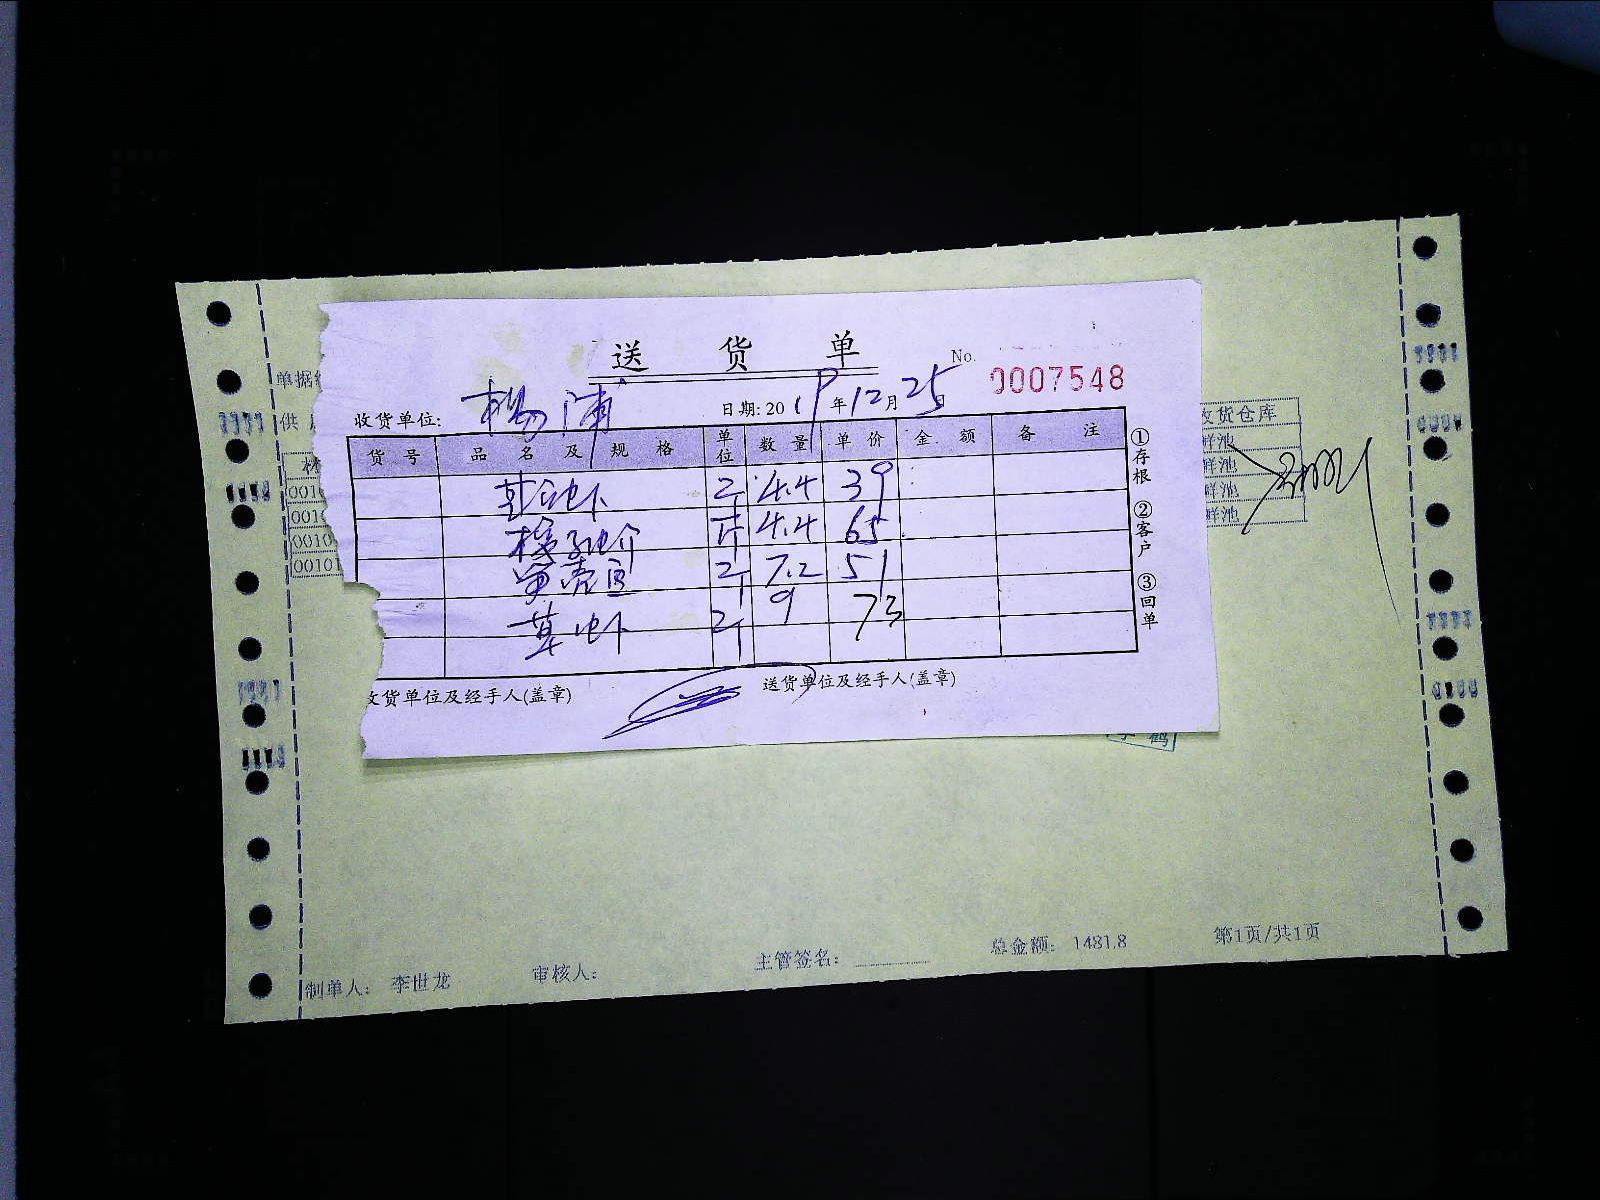 送 货 单
No. 0007548
单据
收货单位: 杨浦 日期: 2019年12月25日
供
收货仓库
货 号 品 名 及 规 格 单位 数 量 单 价 金 额 备 注
斤 4.4 39
斤 4.4 65
斤 7.2 51
草虾 斤 9 73
001
001
0010
00101
鲜池
鲜池
鲜池
鲜池
①存根 ②客户 ③回单
收货单位及经手人(盖章) 送货单位及经手人(盖章)
制单人: 李世龙 审核人: 主管签名: 总金额: 1481.8 第1页/共1页